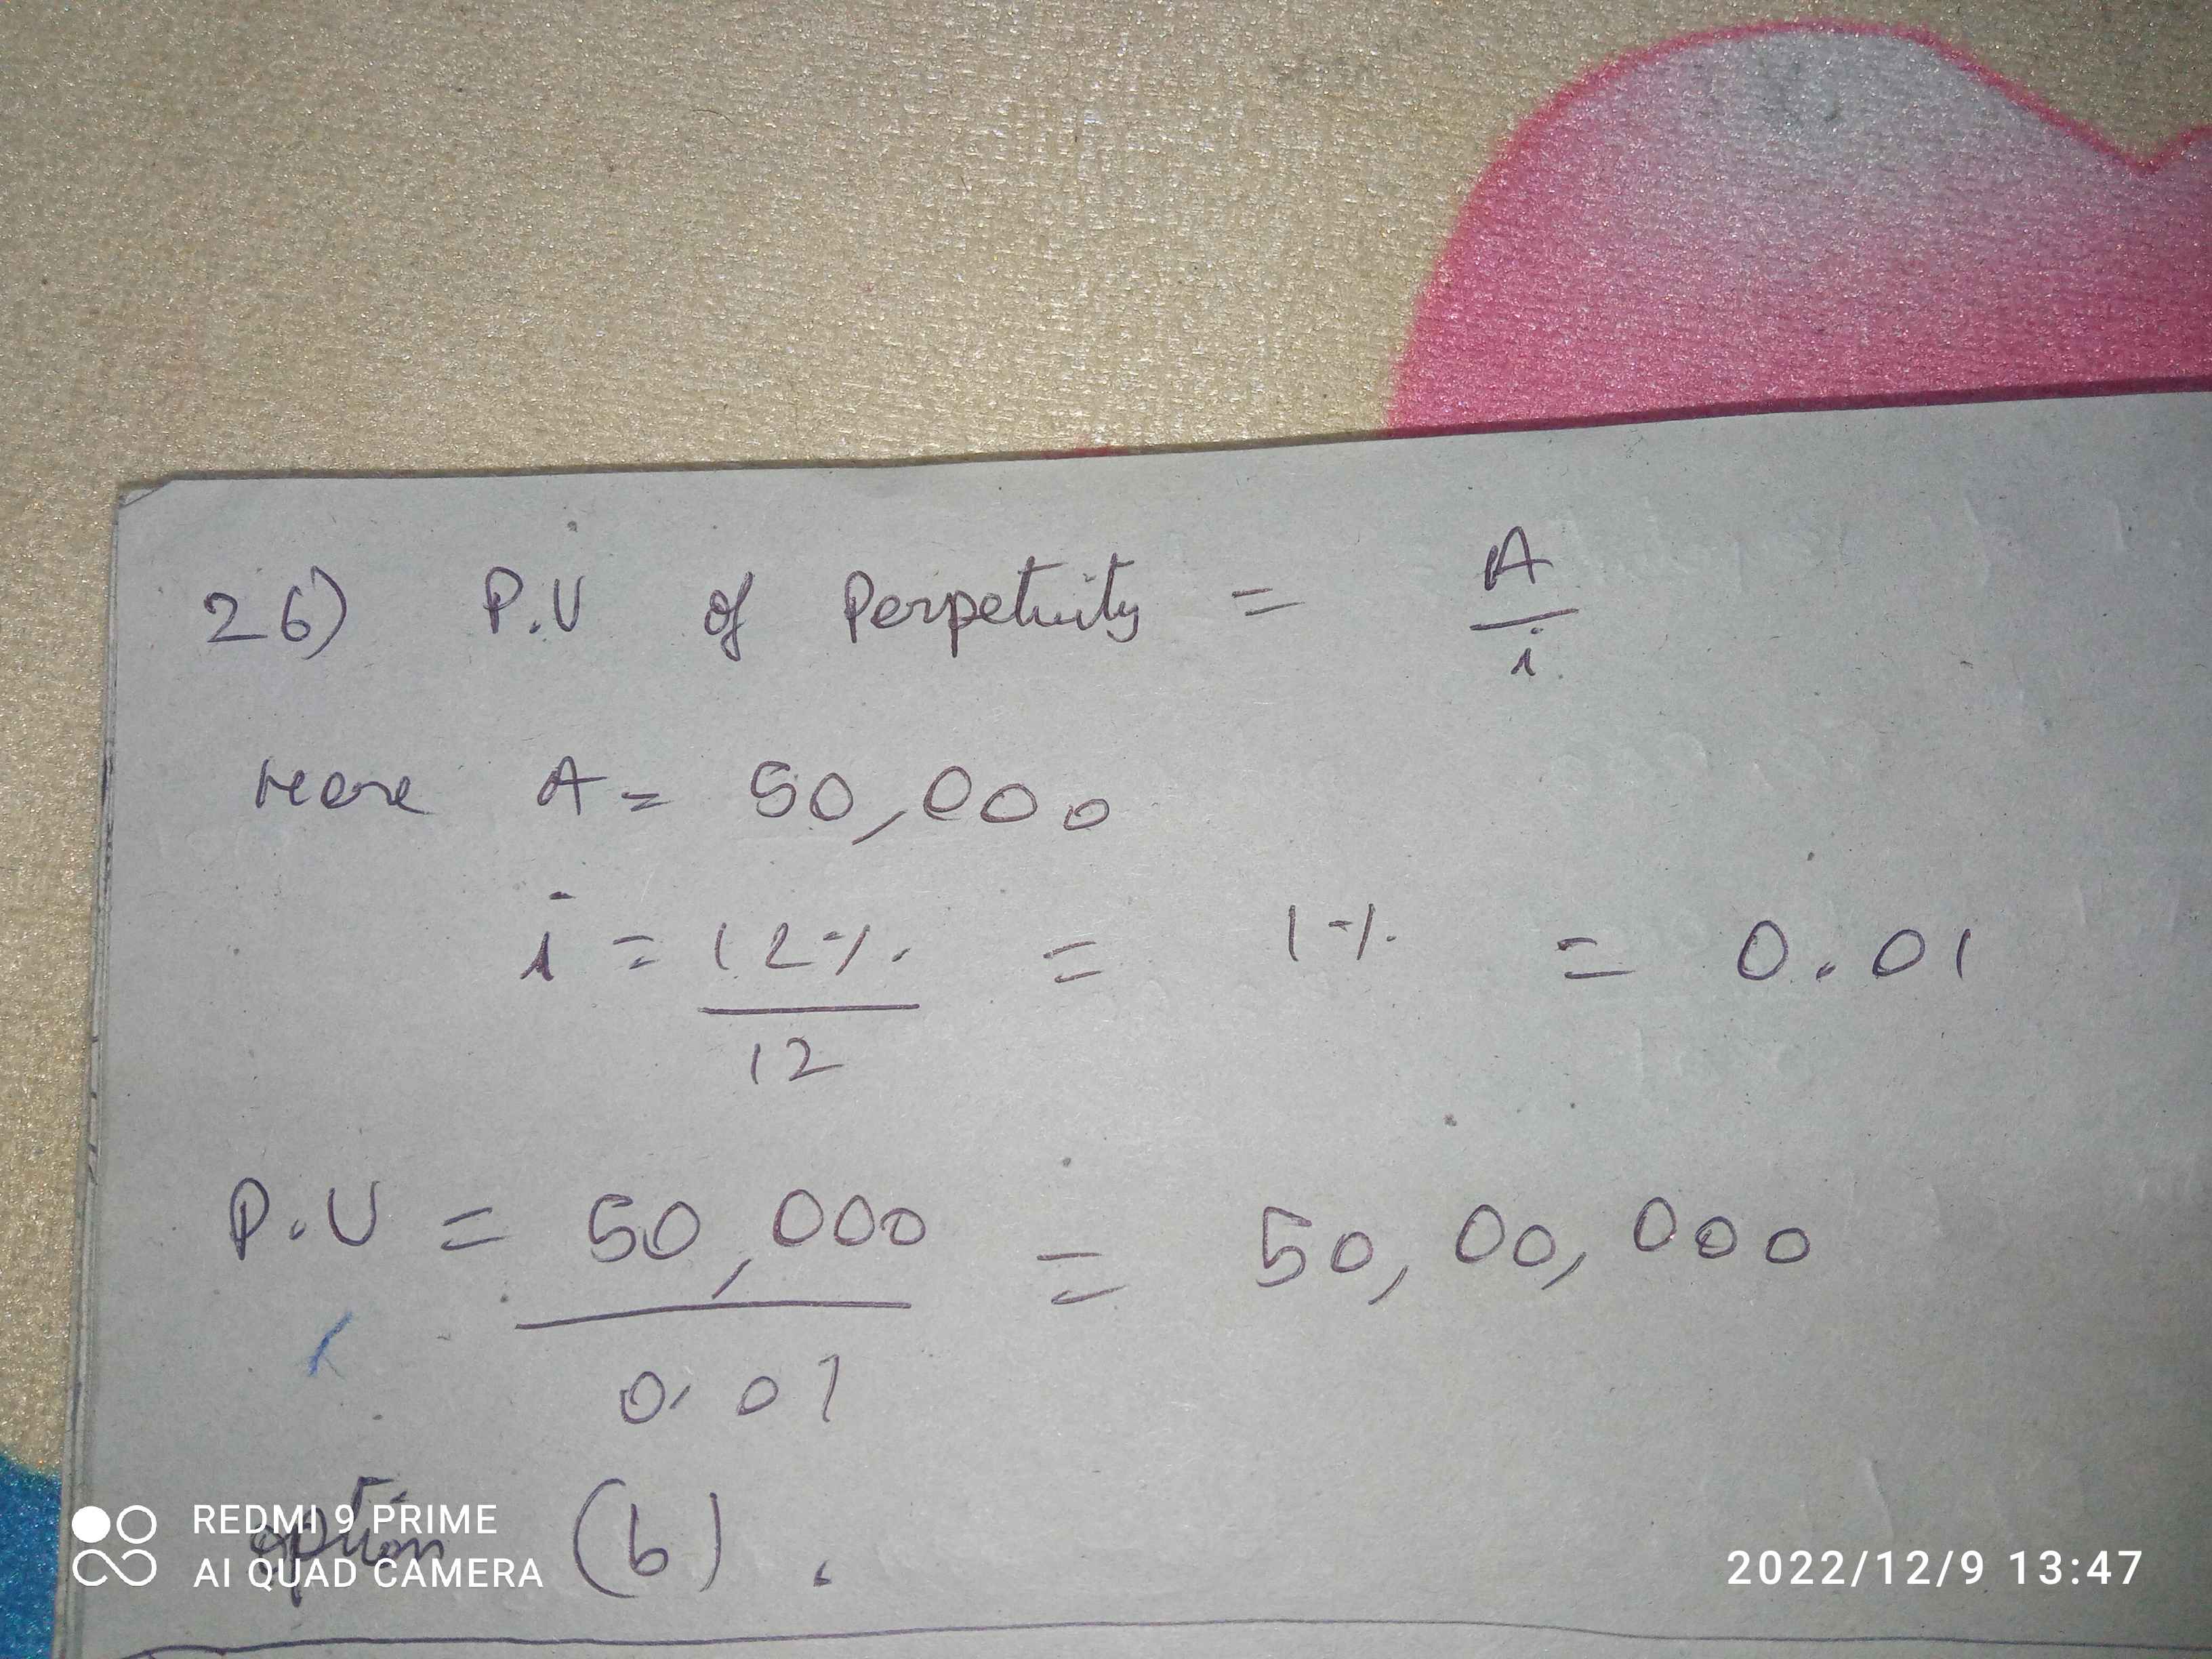 26) P.V of Perpetuity = A/i
Here A = 50,000
i = 12%/12 = 1% = 0.01
P.V = 50,000/0.01 = 50,00,000
option (b).
REDMI 9 PRIME
AI QUAD CAMERA
2022/12/9 13:47